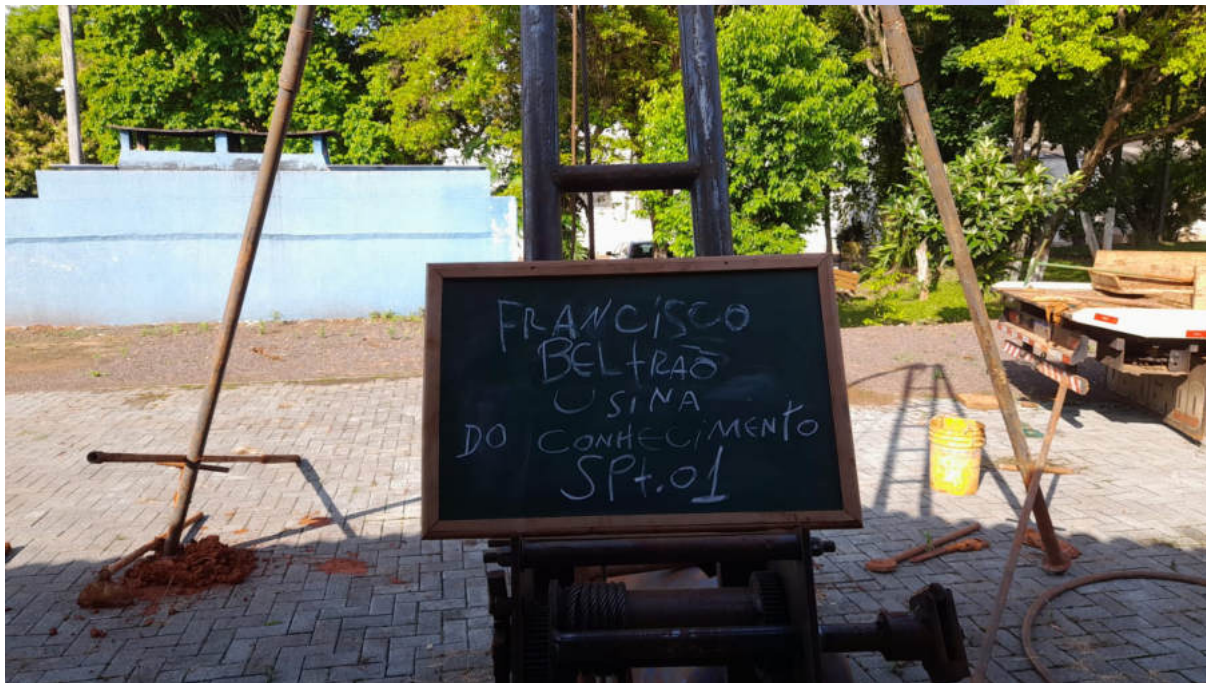 FRANCISCO
BELtRAÕ
USINA
DO CONHECIMENTO
SPt.01